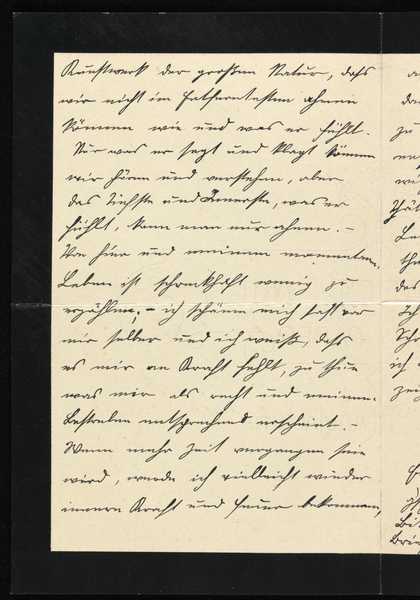 Kunstwerk der großen Natur, daß
wir nicht im Entferntesten ahnen
können wie und was er fühlt.
Nur was er sagt und klagt können
wir hören und verstehen, aber
das Tiefste und Innerste, was er
fühlt, kann man nur ahnen. –
Von hier und meinem momentan.
Leben ist schreckhaft wenig zu
erzählen; – ich schäme mich fast vor
mir selber und ich weiß, daß
es mir an Kraft fehlt, zu thun
was mir als recht und meinen
Bestreben entsprechend erscheint. –
Wenn mehr Zeit vergangen sein
wird, werde ich vielleicht wieder
innere Kraft und Feuer bekommen,